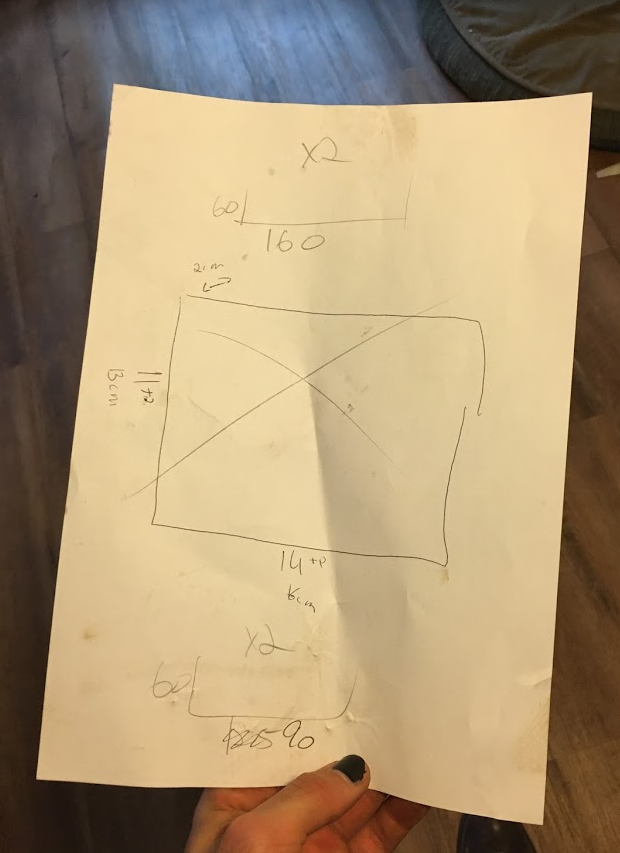 x2
60
160
2cm
11+2
13cm
14+2
16cm
x2
60
90